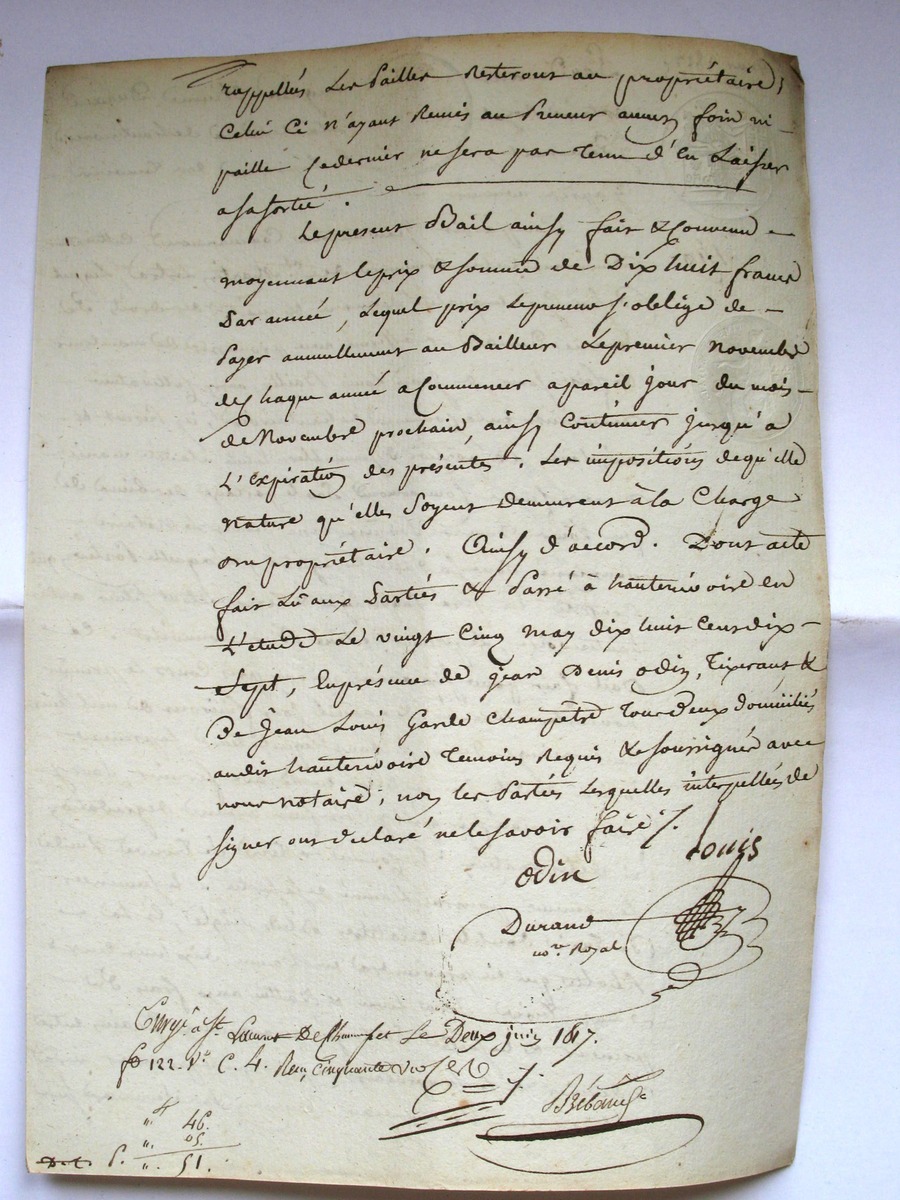 rappellés Les Pailles Resteront au propriétaire;
Celui Ci n'ayant Remis au Preneur aucun foin ni -
paille Ce dernier ne sera pas Tenu d'en Laisser
a sa sortie.
Le present Bail ainsy fait & Convenu -
moyennant le prix & somme de Dix huit francs
Par année, Lequel prix Le preneur s'oblige de -
Payer annuellement au Bailleur Le premier novembre
de Chaque année a Commencer a pareil jour du mois -
de Novembre prochain, ainsy Continuer jusqu'a
L'expiration des présentes. Les impositions de qu'elle
nature qu'elles Soyent demeurent à la Charge
du propriétaire. Ainsy d'accord. Dont acte
fait Lu aux Parties & Passé à hauterivoire en
L'etude Le vingt Cinq may dix huit Cent dix -
Sept, En présence de jean Denis odin, Tixerant, &
De Jean Louis Garde Champetre Tous deux domiciliés
audit hauterivoire Temoins Requis & soussignés avec
nous notaire, non les Parties Lesquelles interpellées de
signer ont declaré ne le savoir faire ./.
odin Louis
Durand
no.re Royal
Enrg.é à St. Laurent De Chamousset Le Deux juin 1817.
fo 122. V.o C. 4. Reçu, Cinquante un
46.
05.
51.